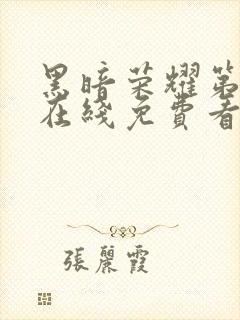 黑暗荣耀第
在綫免費看
張麗霞